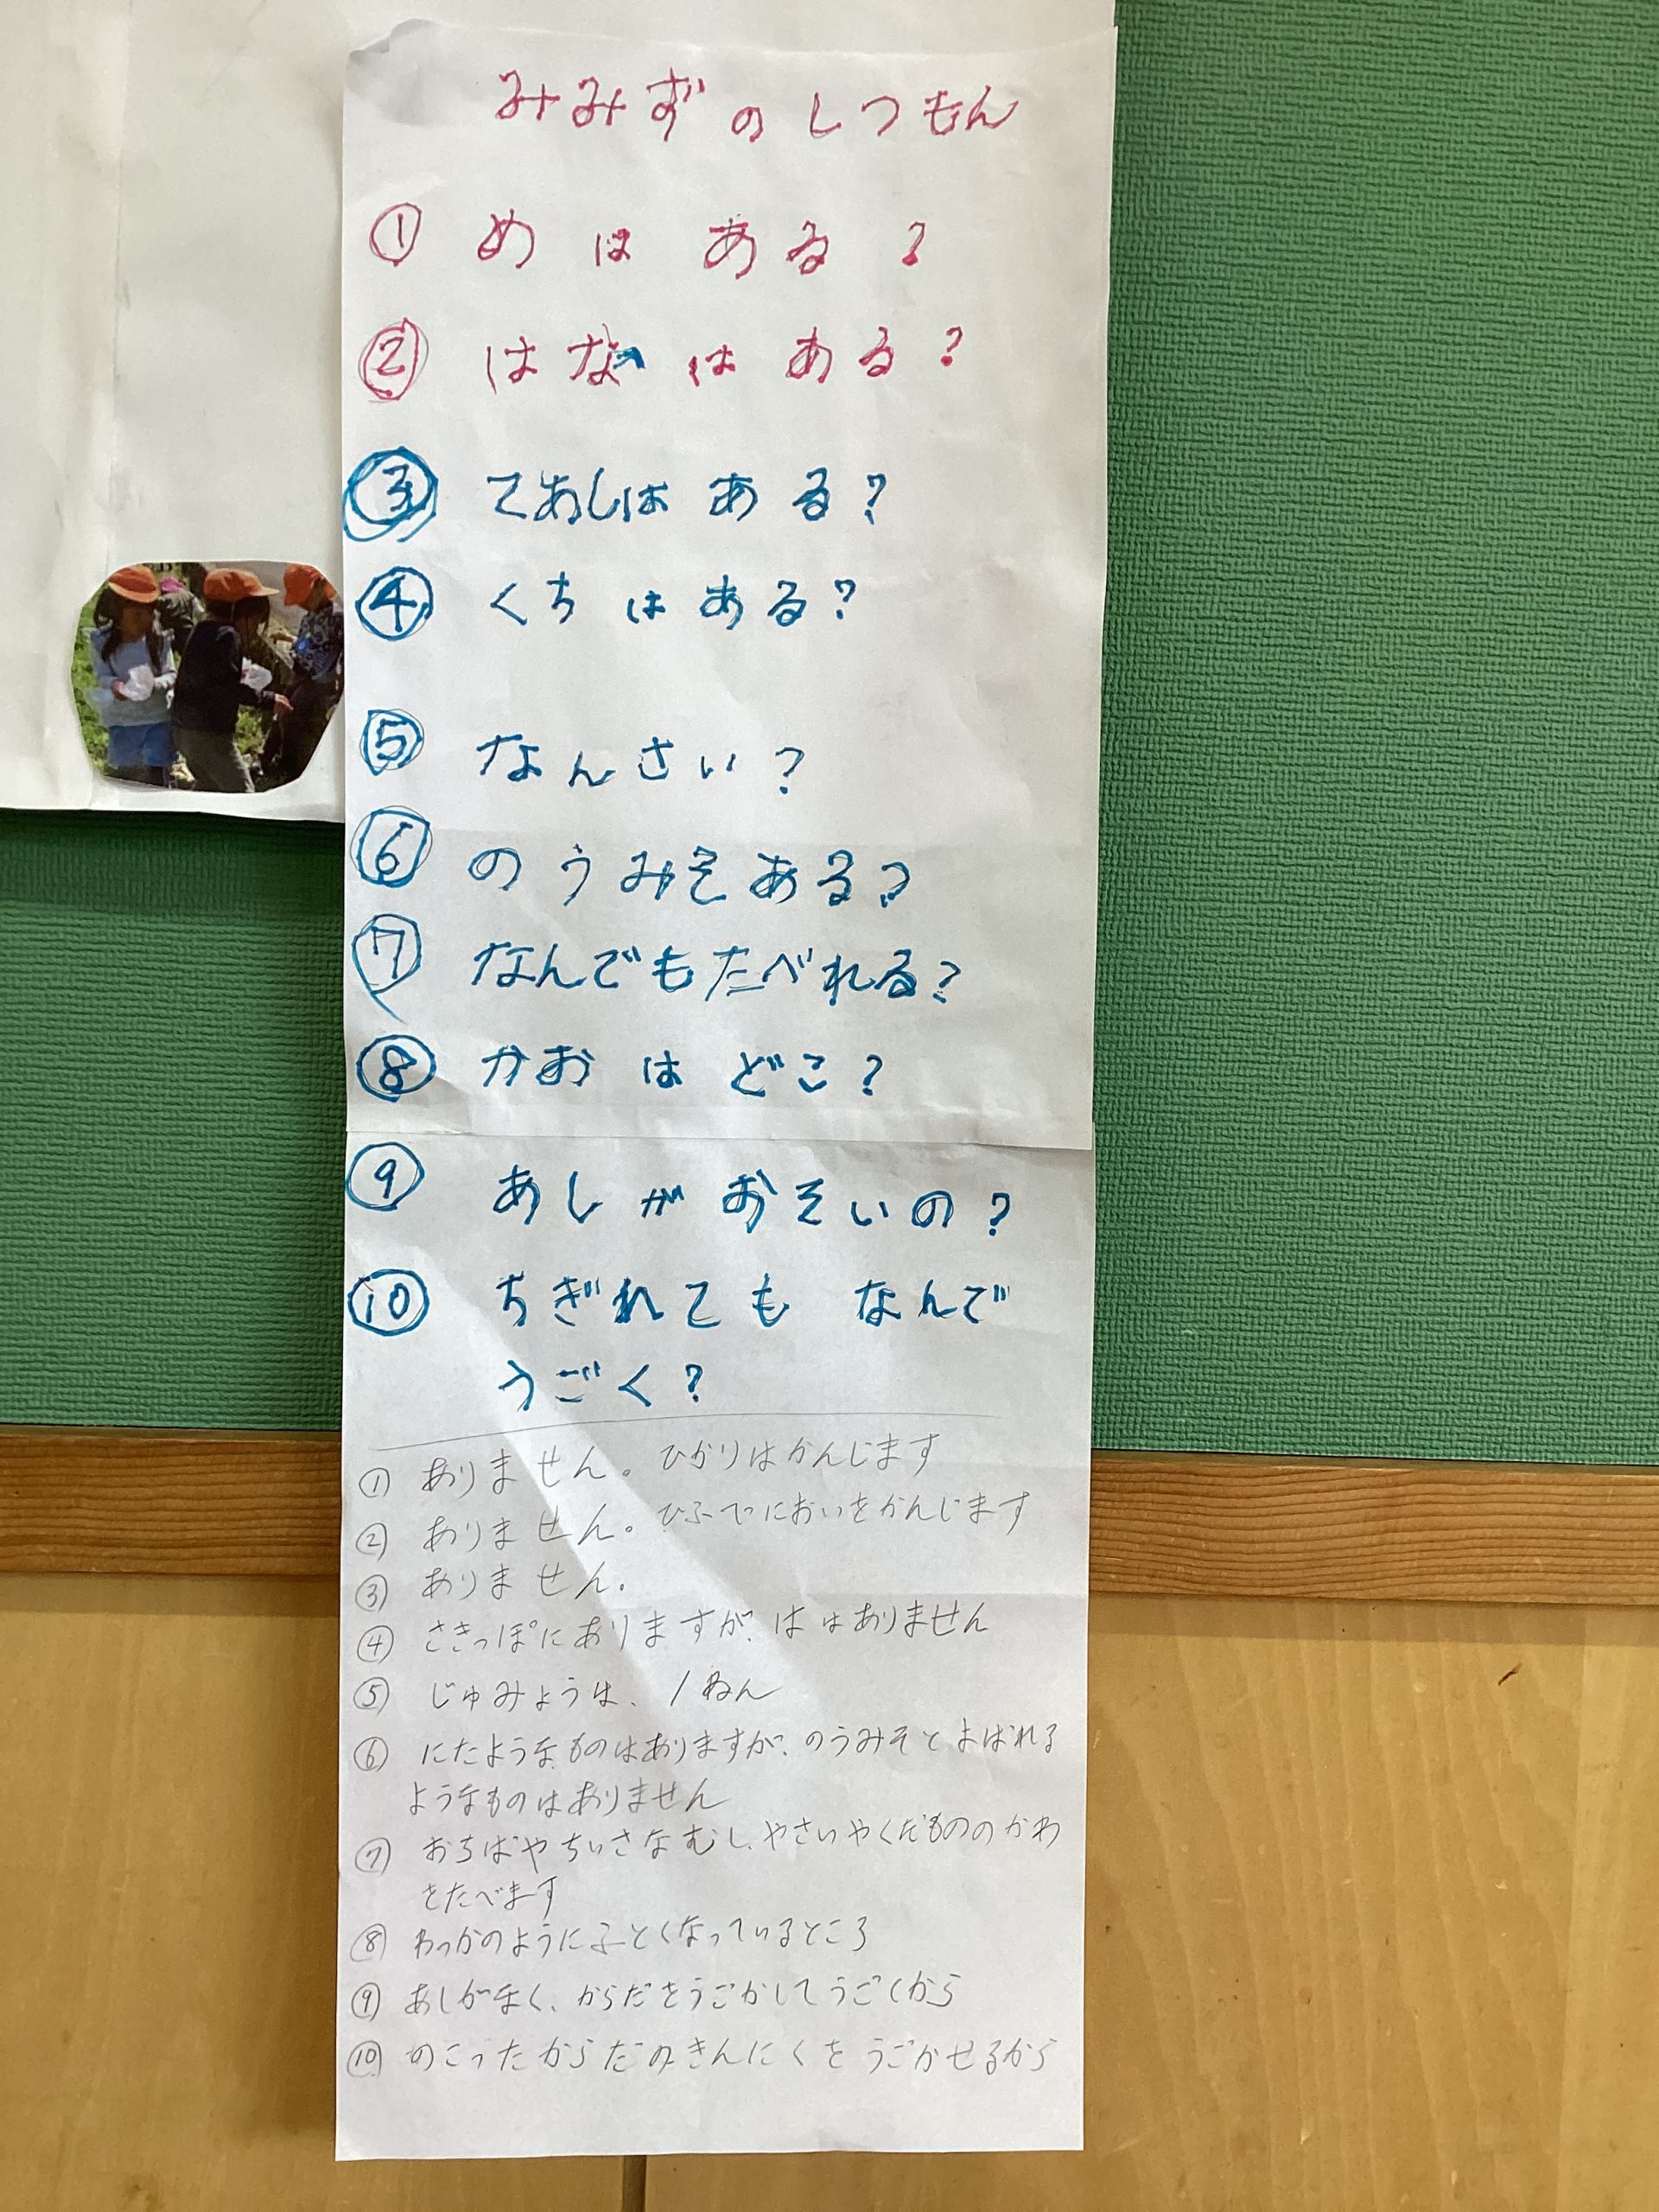 みみずのしつもん
① めはある?
② はなはある?
③ てあしはある?
④ くちはある?
⑤ なんさい?
⑥ のうみそある?
⑦ なんでもたべれる?
⑧ かおはどこ?
⑨ あしがおそいの?
⑩ ちぎれてもなんで
うごく?
① ありません。ひかりはかんじます
② ありません。ひふでにおいをかんじます
③ ありません。
④ さきっぽにありますが、は はありません
⑤ じゅみょうは、1ねん
⑥ にたようなものはありますが、のうみそとよばれる
ようなものはありません
⑦ おちばやちいさなむし、やさいやくだもののかわ
をたべます
⑧ わっかのようにふとくなっているところ
⑨ あしがなく、からだをうごかしてうごくから
⑩ のこったからだのきんにくをうごかせるから